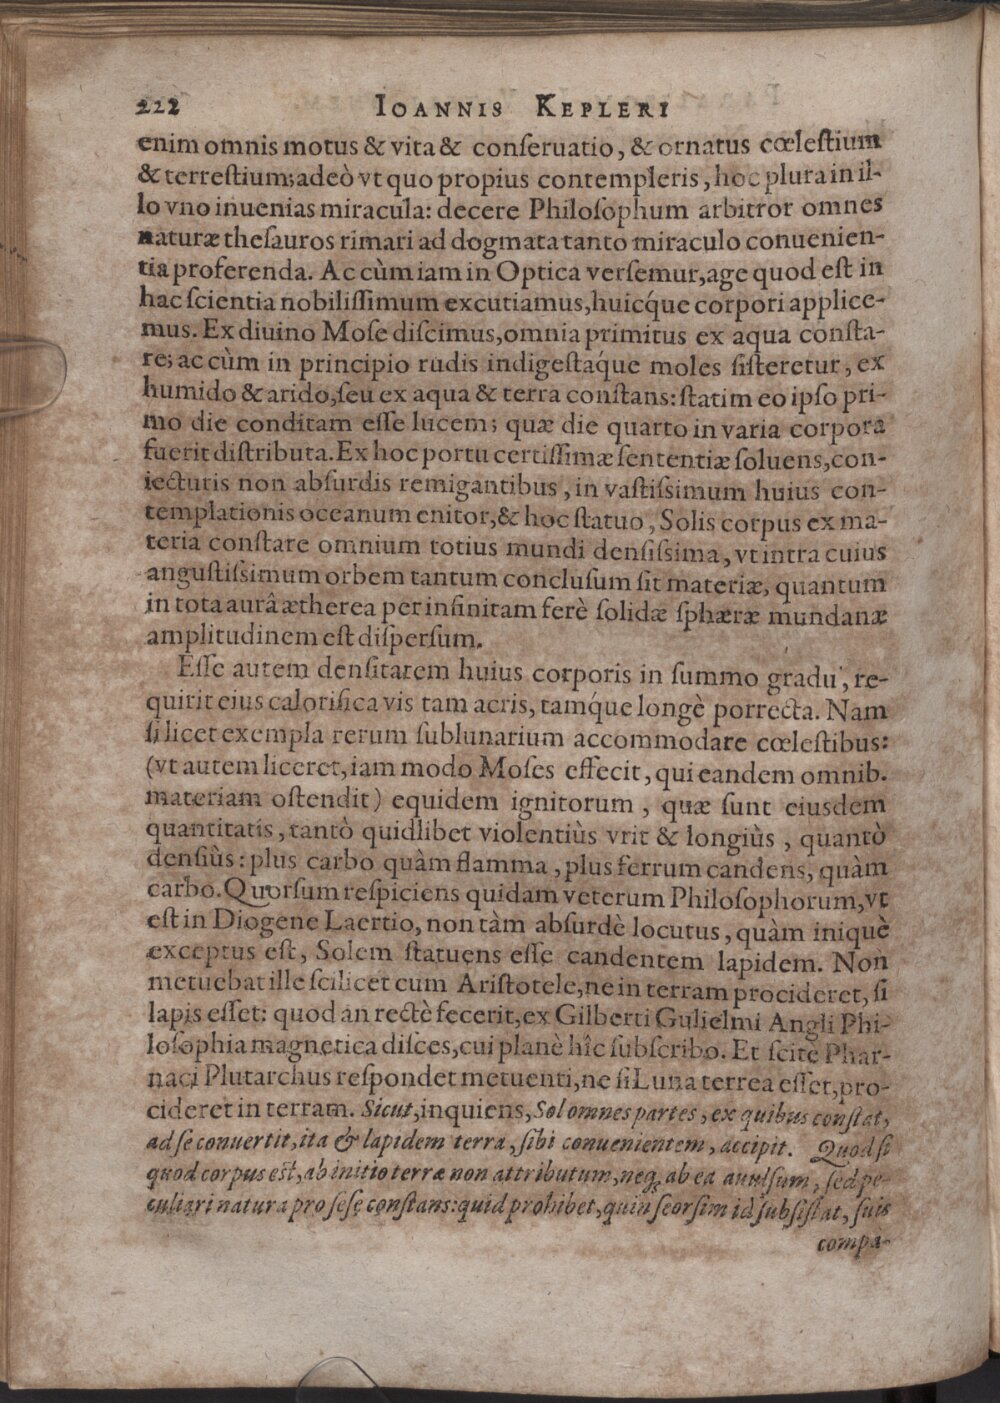 222 IOANNIS KEPLERI
enim omnis motus & vita & conſeruatio, & ornatus cœleſtium
& terreſtium; adeò vt quo propius contempleris, hoc plura in il-
lo vno inuenias miracula: decere Philoſophum arbitror omnes
naturæ theſauros rimari ad dogmata tanto miraculo conuenien-
tia proferenda. Ac cùm iam in Optica verſemur, age quod eſt in
hac ſcientia nobiliſſimum excutiamus, huicq́ue corpori applice-
mus. Ex diuino Moſe diſcimus, omnia primitus ex aqua conſta-
re; ac cùm in principio rudis indigeſtaq́ue moles ſiſteretur, ex
humido & arido, ſeu ex aqua & terra conſtans: ſtatim eo ipſo pri-
mo die conditam eſſe lucem; quæ die quarto in varia corpora
fuerit diſtributa. Ex hoc portu certiſſimæ ſententiæ ſoluens, con-
iecturis non abſurdis remigantibus, in vaſtiſsimum huius con-
templationis oceanum enitor, & hoc ſtatuo, Solis corpus ex ma-
teria conſtare omnium totius mundi denſiſsima, vt intra cuius
anguſtiſsimum orbem tantum concluſum ſit materiæ, quantum
in tota aurâ ætherea per infinitam ferè ſolidæ ſphæræ mundanæ
amplitudinem eſt diſperſum.
Eſſe autem denſitatem huius corporis in ſummo gradu, re-
quirit eius calorifica vis tam acris, tamq́ue longè porrecta. Nam
ſi licet exempla rerum ſublunarium accommodare cœleſtibus:
(vt autem liceret, iam modo Moſes effecit, qui eandem omnib.
materiam oſtendit) equidem ignitorum, quæ ſunt eiusdem
quantitatis, tantò quidlibet violentiùs vrit & longiùs, quantò
denſiùs: plus carbo quàm flamma, plus ferrum candens, quàm
carbo. Quorſum reſpiciens quidam veterum Philoſophorum, vt
eſt in Diogene Laertio, non tàm abſurdè locutus, quàm iniquè
exceptus eſt, Solem ſtatuens eſſe candentem lapidem. Non
metuebat ille ſcilicet cum Ariſtotele, ne in terram procideret, ſi
lapis eſſet: quod an rectè fecerit, ex Gilberti Gulielmi Angli Phi-
loſophia magnetica diſces, cui planè hîc ſubſcribo. Et ſcitè Phar-
naci Plutarchus reſpondet metuenti, ne ſi Luna terrea eſſet, pro-
cideret in terram. Sicut, inquiens, Sol omnes partes, ex quibus conſtat,
ad ſe conuertit, ita & lapidem terra, ſibi conuenientem, accipit. Quod ſi
quod corpus eſt, ab initio terræ non attributum, neq; ab ea auulſum, ſed pe-
culiari natura pro ſeſe conſtans: quid prohibet, quin ſeorſim id ſubſiſtat, ſuis
compa-